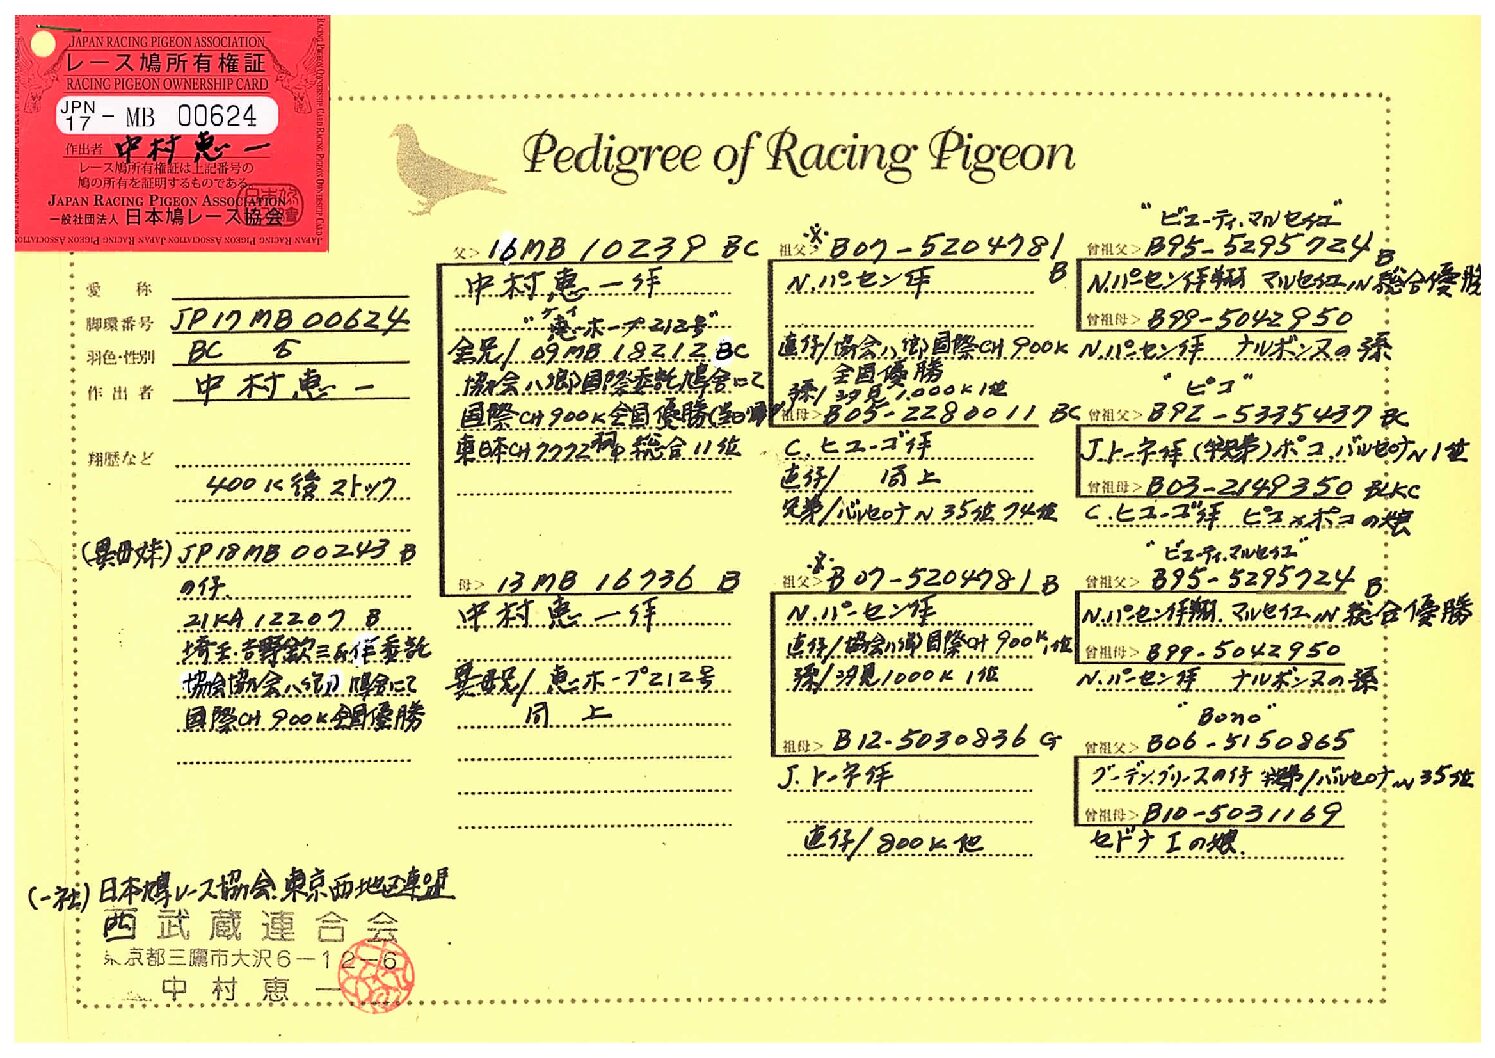 JAPAN RACING PIGEON ASSOCIATION
レース鳩所有権証
RACING PIGEON OWNERSHIP CARD
JPN 17 - MB 00624
作出者 中村恵一
レース鳩所有権証は上記番号の
鳩の所有を証明するものである。
JAPAN RACING PIGEON ASSOCIATION
一般社団法人 日本鳩レース協会
Pedigree of Racing Pigeon
愛称
脚環番号 JP17MB00624
羽色・性別 BC
作出者 中村恵一
翔歴など
400K後ストック
(異母妹) JP18MB00243 B
の仔.
21KA12207 B
埼玉.吉野欽三氏作委託
協会協会八郷 鳩舎にて
国際CH900K全国優勝
父> 16MB10239 BC
中村恵一作
ケイ
"恵ホープ212号"
全兄/09MB18212BC
協会八郷国際委託鳩舎にて
国際CH900K全国優勝
東日本CH7772羽中総合11位
母> 13MB16736 B
中村恵一作
異母兄/恵ホープ212号
同上
祖父> B07-5204781
B
N.パーセン作
直仔/協会八郷国際CH900K
全国優勝
孫/汐見1,000K1位
祖母> B05-2280011 BC
C.ヒューゴ作
直仔/ 同上
兄弟/バルセロナN35位74位
祖父> B07-5204781 B
N.パーセン作
直仔/協会八郷国際CH900K1位
孫/汐見1000K1位
祖母> B12-5030836 G
J.トーネ作
直仔/800K他
"ビューティ.マルセイユ"
曾祖父> B95-5295724 B
N.パーセン作翔 マルセイユN総合優勝
曾祖母> B99-5042950
N.パーセン作 ナルボンヌの孫
"ピコ"
曾祖父> B92-5335437 BC
J.トーネ作(半兄弟)ポコ.バルセロナN1位
曾祖母> B03-2149350 BLKC
C.ヒューゴ作 ピコ×ポコの娘
"ビューティ.マルセイユ"
曾祖父> B95-5295724 B
N.パーセン作翔.マルセイユN総合優勝
曾祖母> B99-5042950
N.パーセン作 ナルボンヌの孫
"Bono"
曾祖父> B06-5150865
グーデン.ブリースの仔 半兄弟/バルセロナN35位
曾祖母> B10-5031169
セドナIの娘.
(一社)日本鳩レース協会.東京西地区連盟
西武蔵連合会
東京都三鷹市大沢6-12-6
中村恵一